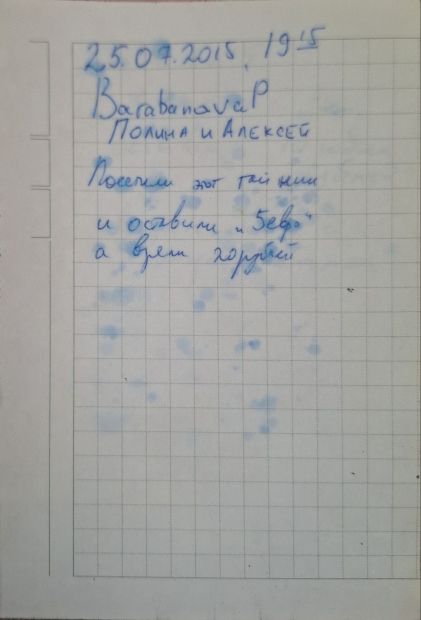 25.07.2015, 19 15
BarabanovaP
Полина и Алексей
Посетили этот тайник
и оставили "5евро"
а взяли 20рублей